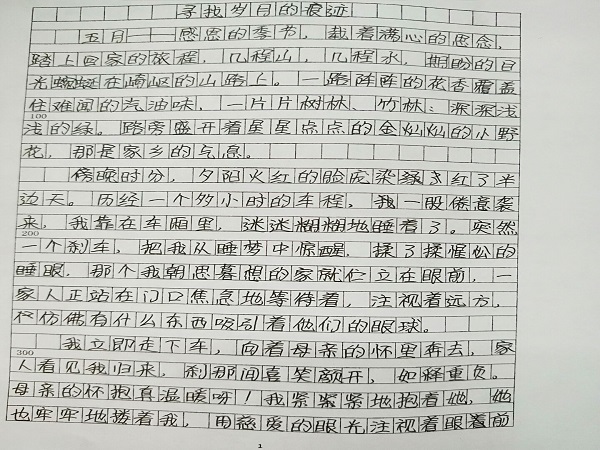 寻找岁月的痕迹
五月——感恩的季节，载着满心的思念，
踏上回家的旅程，几程山，几程水，期盼的目
光蜿蜒在崎岖的山路上。一路阵阵的花香覆盖
住难闻的汽油味，一片片树林、竹林：深深浅
100
浅的绿。路旁盛开着星星点点的金灿灿的小野
花，那是家乡的气息。
傍晚时分，夕阳火红的脸庞染红了半
边天。历经一个多小时的车程，我一股倦意袭
来，我靠在车厢里，迷迷糊糊地睡着了。突然
200
一个刹车，把我从睡梦中惊醒，揉了揉惺忪的
睡眼，那个我朝思暮想的家就伫立在眼前，一
家人正站在门口焦急地等待着，注视着远方，
仿佛有什么东西吸引着他们的眼球。
我立即走下车，向着母亲的怀里奔去，家
300
人看见我归来，刹那间喜笑颜开，如释重负。
母亲的怀抱真温暖呀！我紧紧地抱着她，她
也牢牢地搂着我，用慈爱的眼光注视着眼着前
1